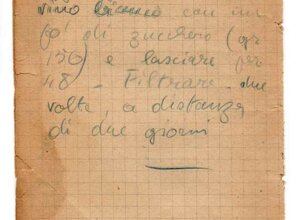 vino bianco con un
po' di zucchero (gr
150) e lasciare per
48 - Filtrare due
volte, a distanza
di due giorni